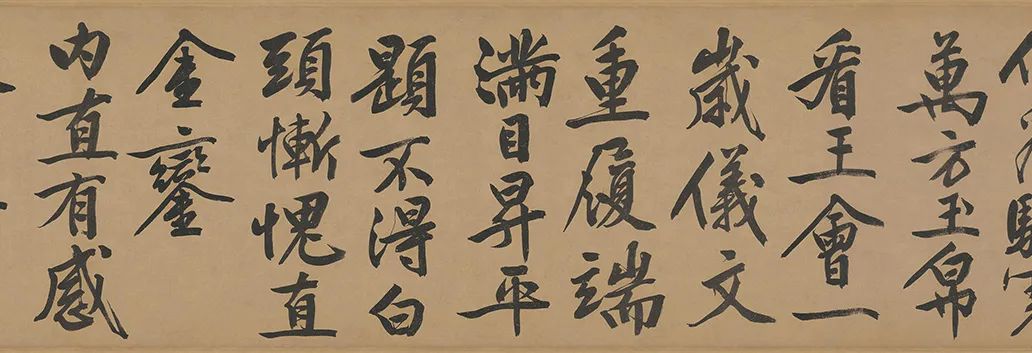 萬方玉帛
看王會一
歲儀文
重履端
滿目昇平
題不得白
頭慚愧直
金鑾
內直有感